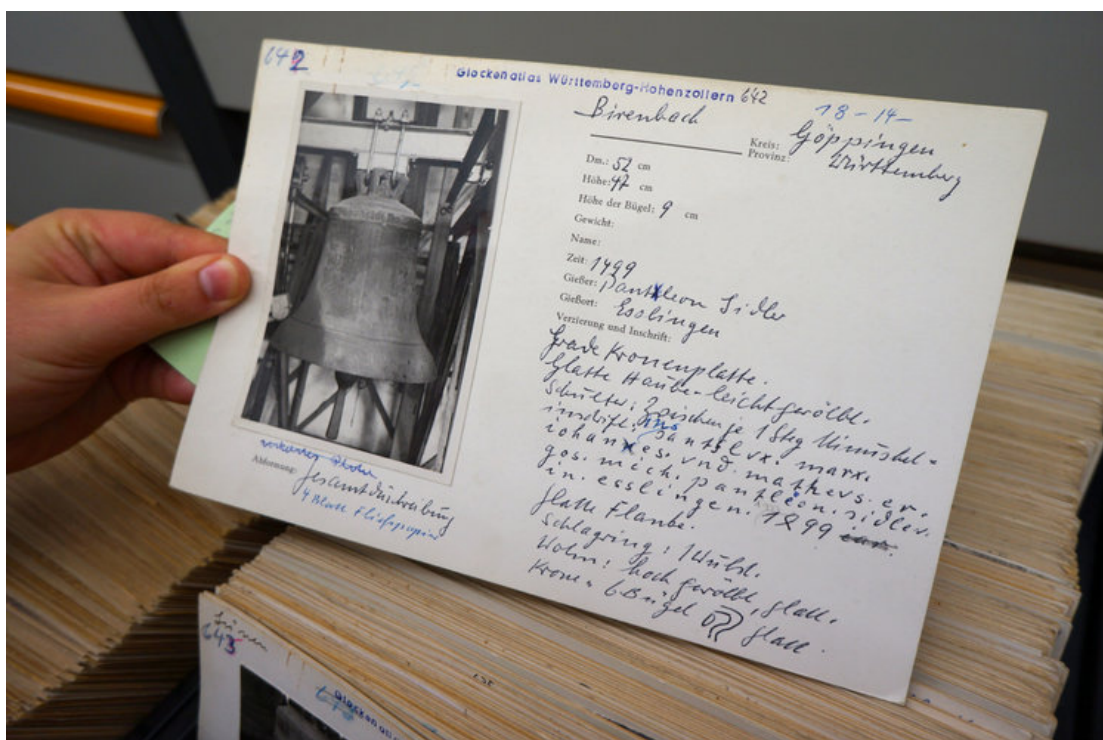 642
Glockenatlas Württemberg-Hohenzollern 642
18-14-
Birenbach
Kreis: Göppingen
Provinz: Württemberg
Dm.: 52 cm
Höhe: 47 cm
Höhe der Bügel: 9 cm
Gewicht:
Name:
Zeit: 1499
Gießer: Pantleon Sidler
Gießort: Esslingen
Verzierung und Inschrift:
Grade Kronenplatte.
Glatte Haube-leicht gewölbt.
Schulter: Zwischen je 1 Steg Minuskel-
inschrift: lvx. marx.
iohanes. vnd. mathevs. er.
gos. mich. pantleon. sidler.
in. esslingen. 1499
Glatte Flanke.
Schlagring: 1 Wulst.
Wolm: hoch gewölbt, glatt.
Krone = 6 Bügel glatt.
Abformung: Gesamtdurchreibung
4 Blatt Fließpapier
643
Glockenatlas